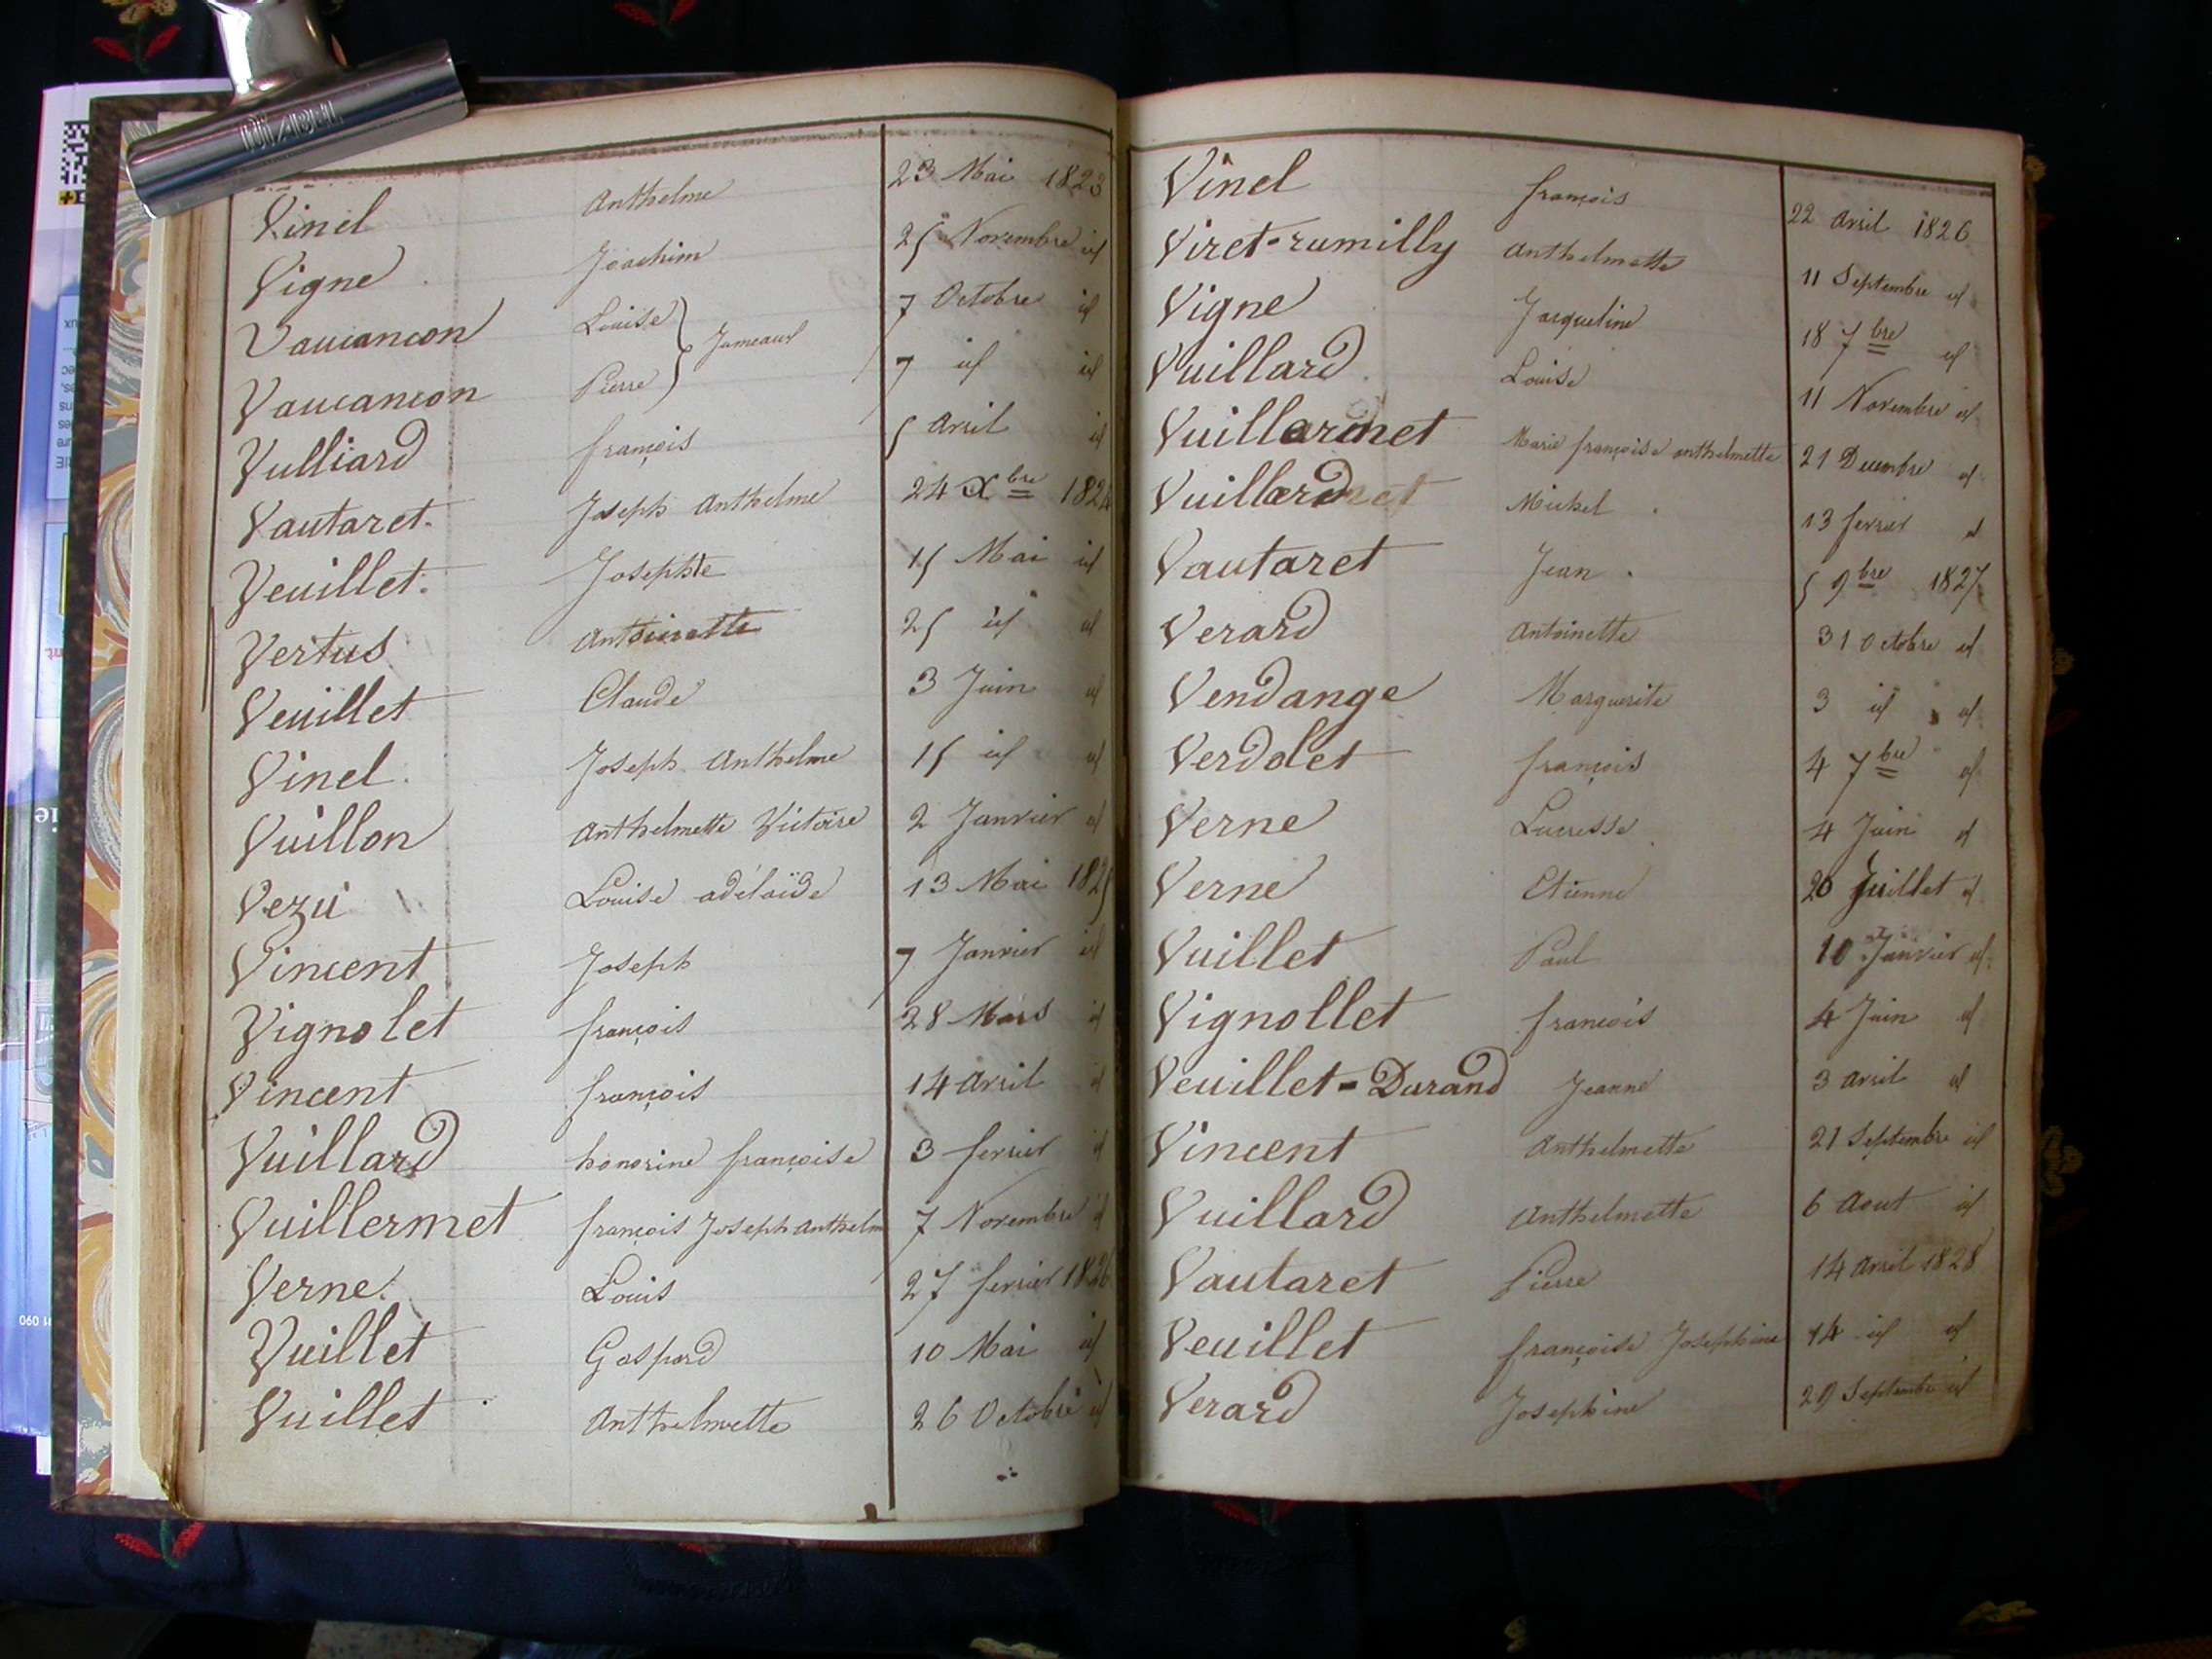 DIZABEL
Vinel Anthelme 23 Mai 1823
Vigne Joachim 25 Novembre id
Vaucancon Louise 7 Octobre id
Jumeaux
Vaucancon Pierre 7 id id
Vulliard françois 5 Avril id
Vautaret Joseph Anthelme 24 Xbre 1824
Veuillet Josephte 15 Mai id
Vertus Antoinette 25 id id
Veuillet Claude 3 Juin id
Vinel Joseph Anthelme 15 id id
Vuillon Anthelmette Victoire 2 Janvier id
Vezu Louise adélaïde 13 Mai 1825
Vincent Joseph 7 Janvier id
Vignolet françois 28 Mars id
Vincent françois 14 Avril id
Vuillard honorine françoise 3 fevrier id
Vuillermet françois Joseph anthelm 7 Novembre id
Verne Louis 27 fevrier 1826
Vuillet Gaspard 10 Mai id
Vuillet Anthelmette 26 Octobre id
Vinel françois 22 Avril 1826
Viret-rumilly Anthelmette 11 Septembre id
Vigne Jacqueline 18 7bre id
Vuillard Louise 11 Novembre id
Vuillermet Marie françoise anthelmette 21 Decembre id
Michel 13 fevrier id
Vautaret Jean 5 9bre 1827
Verard Antoinette 31 Octobre id
Vendange Marguerite 3 id id
Verdolet françois 4 7bre id
Verne Lucresse 4 Juin id
Verne Etienne 20 Juillet id
Vuillet Paul 10 Janvier id
Vignollet francois 4 Juin id
Veuillet-Durand Jeanne 3 Avril id
Vincent Anthelmette 21 Septembre id
Vuillard Anthelmette 6 Aout id
Vautaret Pierre 14 Avril 1828
Veuillet françoise Josephine 14 id id
Verard Josephine 29 Septembre id